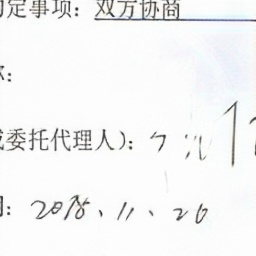 定事项：双方协商
：
委托代理人）：
：2018、11、26